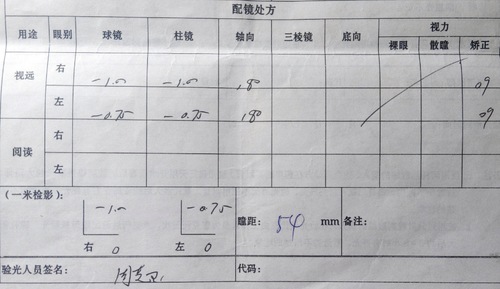 配镜处方
用途 眼别 球镜 柱镜 轴向 三棱镜 底向 视力
裸眼 散瞳 矫正
视远 右 -1.0 -1.0 180 09
左 -0.75 -0.75 180 09
阅读 右
左
(一米检影):
-1.0 -0.75
瞳距: 54 mm 备注:
右 0 左 0
验光人员签名: 代码: